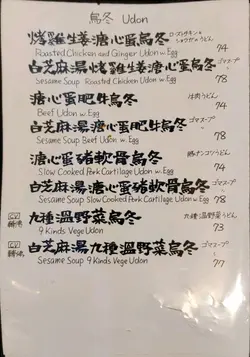 烏冬 Udon
烤雞生姜溏心蛋烏冬 ローストチキン&
ショウガのうどん
Roasted Chicken and Ginger Udon w. Egg 74
白芝麻湯烤雞生姜溏心蛋烏冬 ゴマスープ
Sesame Soup Roasted Chicken Udon w. Egg 78
溏心蛋肥牛烏冬 牛肉うどん
Beef Udon w. Egg 74
白芝麻湯溏心蛋肥牛烏冬 ゴマスープ
Sesame Soup Beef Udon w. Egg 78
溏心蛋豬軟骨烏冬 豚ナンコツうどん
Slow Cooked Pork Cartilage Udon w. Egg 74
白芝麻湯溏心蛋豬軟骨烏冬 ゴマスープ
Sesame Soup Slow Cooked Pork Cartilage Udon w. Egg 78
九種溫野菜烏冬 九種温野菜うどん
9 Kinds Vege Udon 73
白芝麻湯九種溫野菜烏冬 ゴマスープ
Sesame Soup 9 Kinds Vege Udon 77